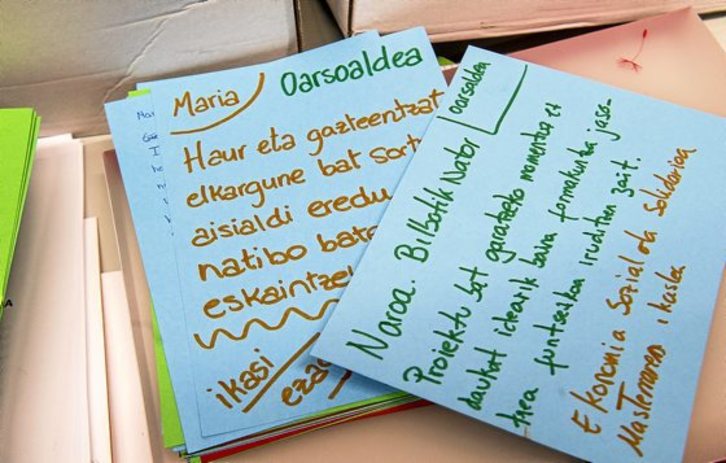 Maria
Oarsoaldea
Haur eta gazteentzat
elkargune bat sort
aisialdi eredu
natibo bat
eskaintze
ikasi
Naroa. Bilbotik Nator
Oarsoaldea
Proiektu bat garatzeko momentuz ez
daukat idearik baina formakuntza jaso-
tzea funtsezkoa iruditzen zait.
Ekonomia Sozial eta Solidarioa
Masterraren ikaslea